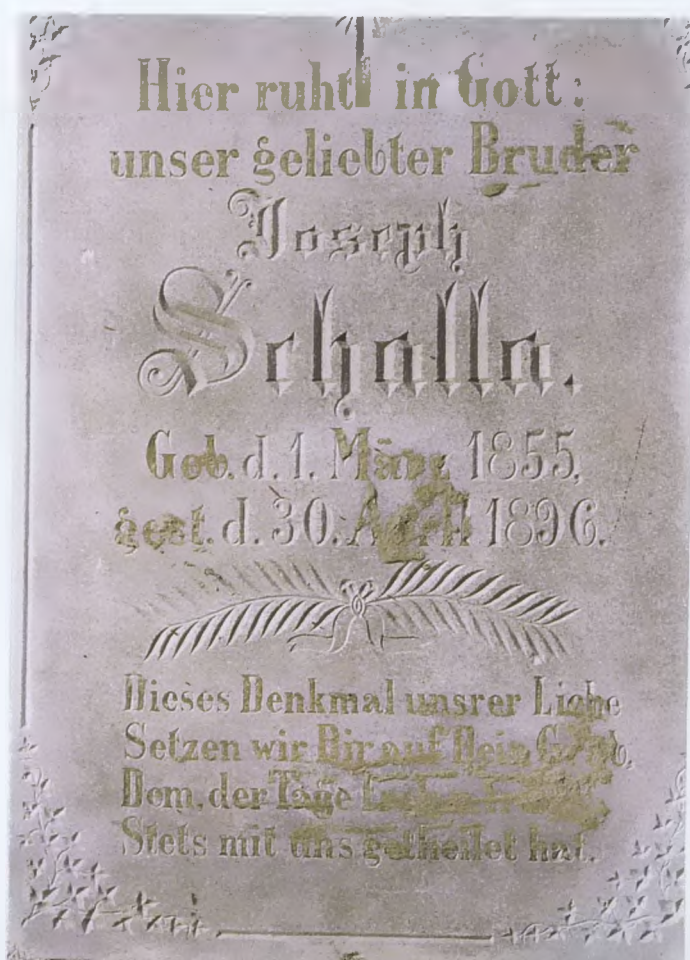 Hier ruht in Gott:
unser geliebter Bruder
Joseph
Schalla.
Geb. d. 1. März 1855,
gest. d. 30. April 1896.
Dieses Denkmal unsrer Liebe
Setzen wir Dir auf Dein Grab,
Dom, der Tage
Stets mit uns getheilet hat.